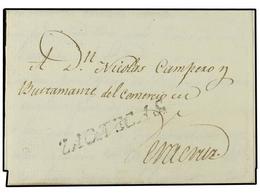 A Dn. Nicolas Campero y
Bustamante del Comercio en
ZACATECAS
Veracruz.